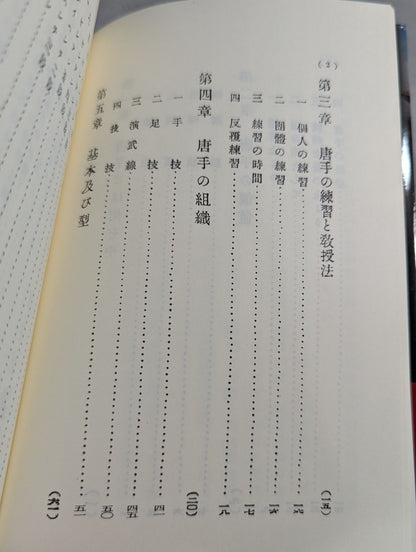 (2)
第三章　唐手の練習と教授法　(一五)
一　個人の練習……一五
二　團體の練習……一六
三　練習の時間……一七
四　反覆練習……一八
第四章　唐手の組織　(二〇)
一　手　技
二　足　技……四一
三　演武線……四五
四　技　技……五〇
第五章　基本及び型　(六一)